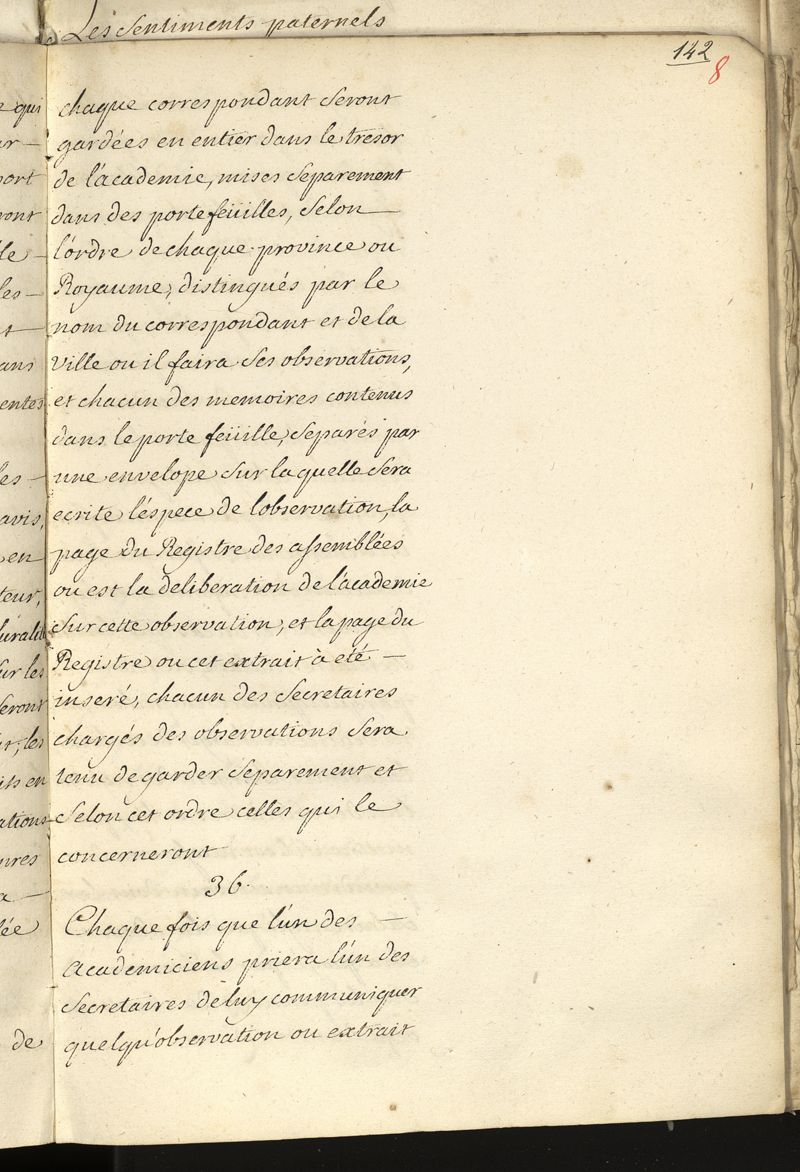 Les Sentiments paternels
142
8
chaque correspondant Seront
gardées en entier dans le tresor
de l'academie, mises Separement
dans des portefeüilles, Selon
l'ordre de chaque province ou
Royaume, distingués par le
nom du correspondant et de la
ville ou il faira Ses observations,
et chacun des memoires contenus
dans le porte feüille, Separés par
une envelope Sur laquelle Sera
ecrite l'éspece de lobservation, la
page du Registre des assemblées
ou est la deliberation de l'academie
Sur cette observation, et la page du
Registre ou cet extrait à eté
inseré, chacun des Secretaires
chargés des observations Sera
tenu de garder Separement et
Selon cet ordre celles qui le
concerneront
36.
Chaque fois que l'un des
academiciens priera l'un des
Secretaires de luy communiquer
quelqu'observation ou extrait
qui
port
ront
les
ans
entes
les
avis,
en
teur,
Sur les
Seront
les
en
ations
de